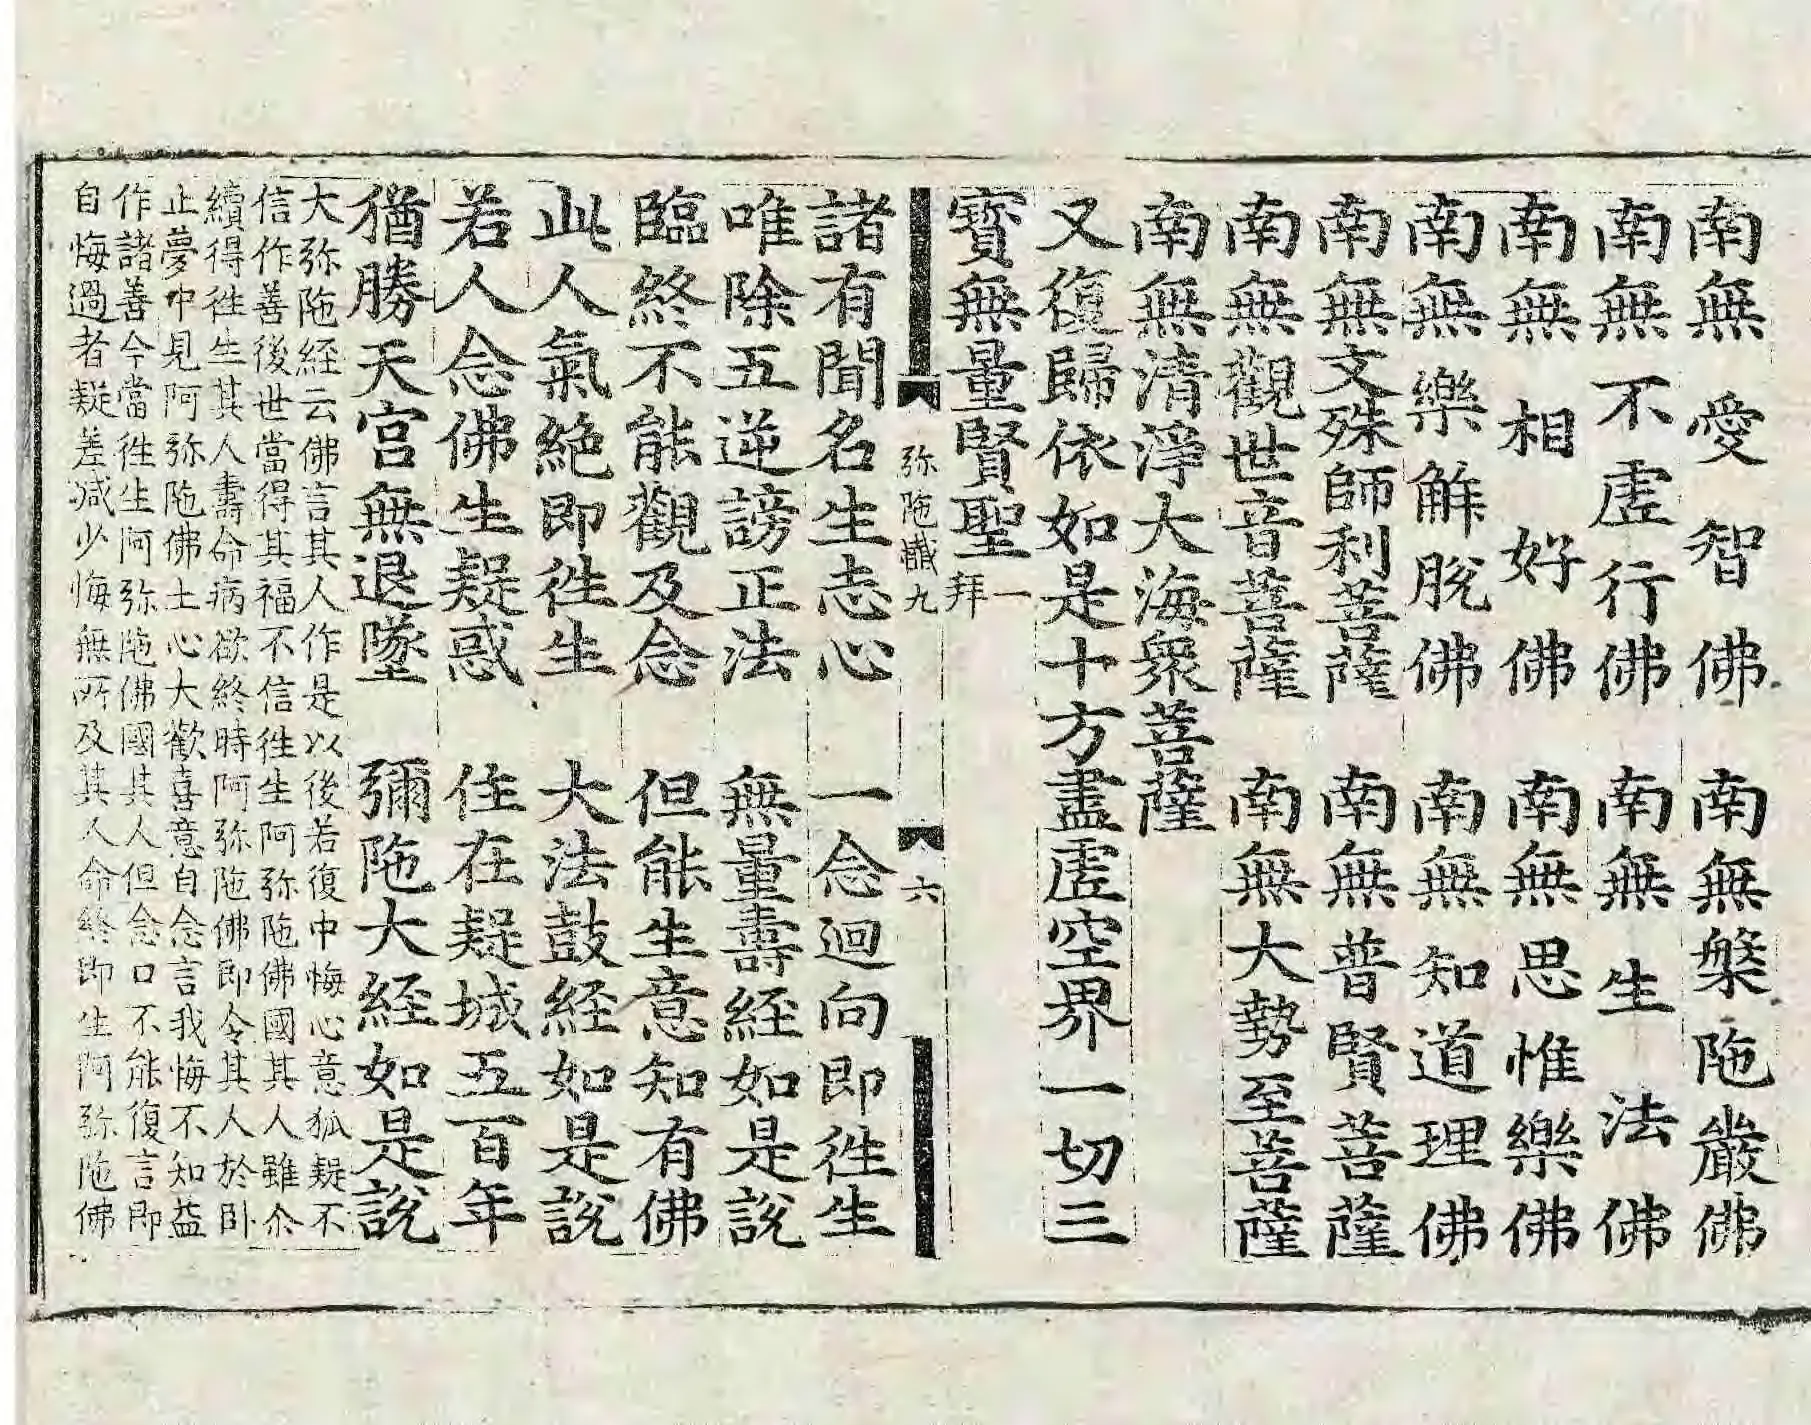 南無愛智佛 南無槃陁嚴佛
南無不虛行佛 南無生法佛
南無相好佛 南無思惟樂佛
南無樂解脫佛 南無知道理佛
南無文殊師利菩薩 南無普賢菩薩
南無觀世音菩薩 南無大勢至菩薩
南無清淨大海衆菩薩
又復歸依如是十方盡虛空界一切三
寶無量賢聖一拜
弥陁懴九 六
諸有聞名生志心 一念迴向即徃生
唯除五逆謗正法 無量壽經如是說
臨終不能觀及念 但能生意知有佛
此人氣絶即徃生 大法鼓經如是說
若人念佛生疑惑 住在疑城五百年
猶勝天宮無退墜 彌陁大經如是說
大弥陁經云佛言其人作是以後若復中悔心意狐疑不
信作善後世當得其福不信徃生阿弥陁佛國其人雖尒
續得徃生其人壽命病欲終時阿弥陁佛即令其人於卧
止夢中見阿弥陁佛土心大歡喜意自念言我悔不知益
作諸善今當徃生阿弥陁佛國其人但念口不能復言即
自悔過者疑差减少悔無所及其人命終即生阿弥陁佛